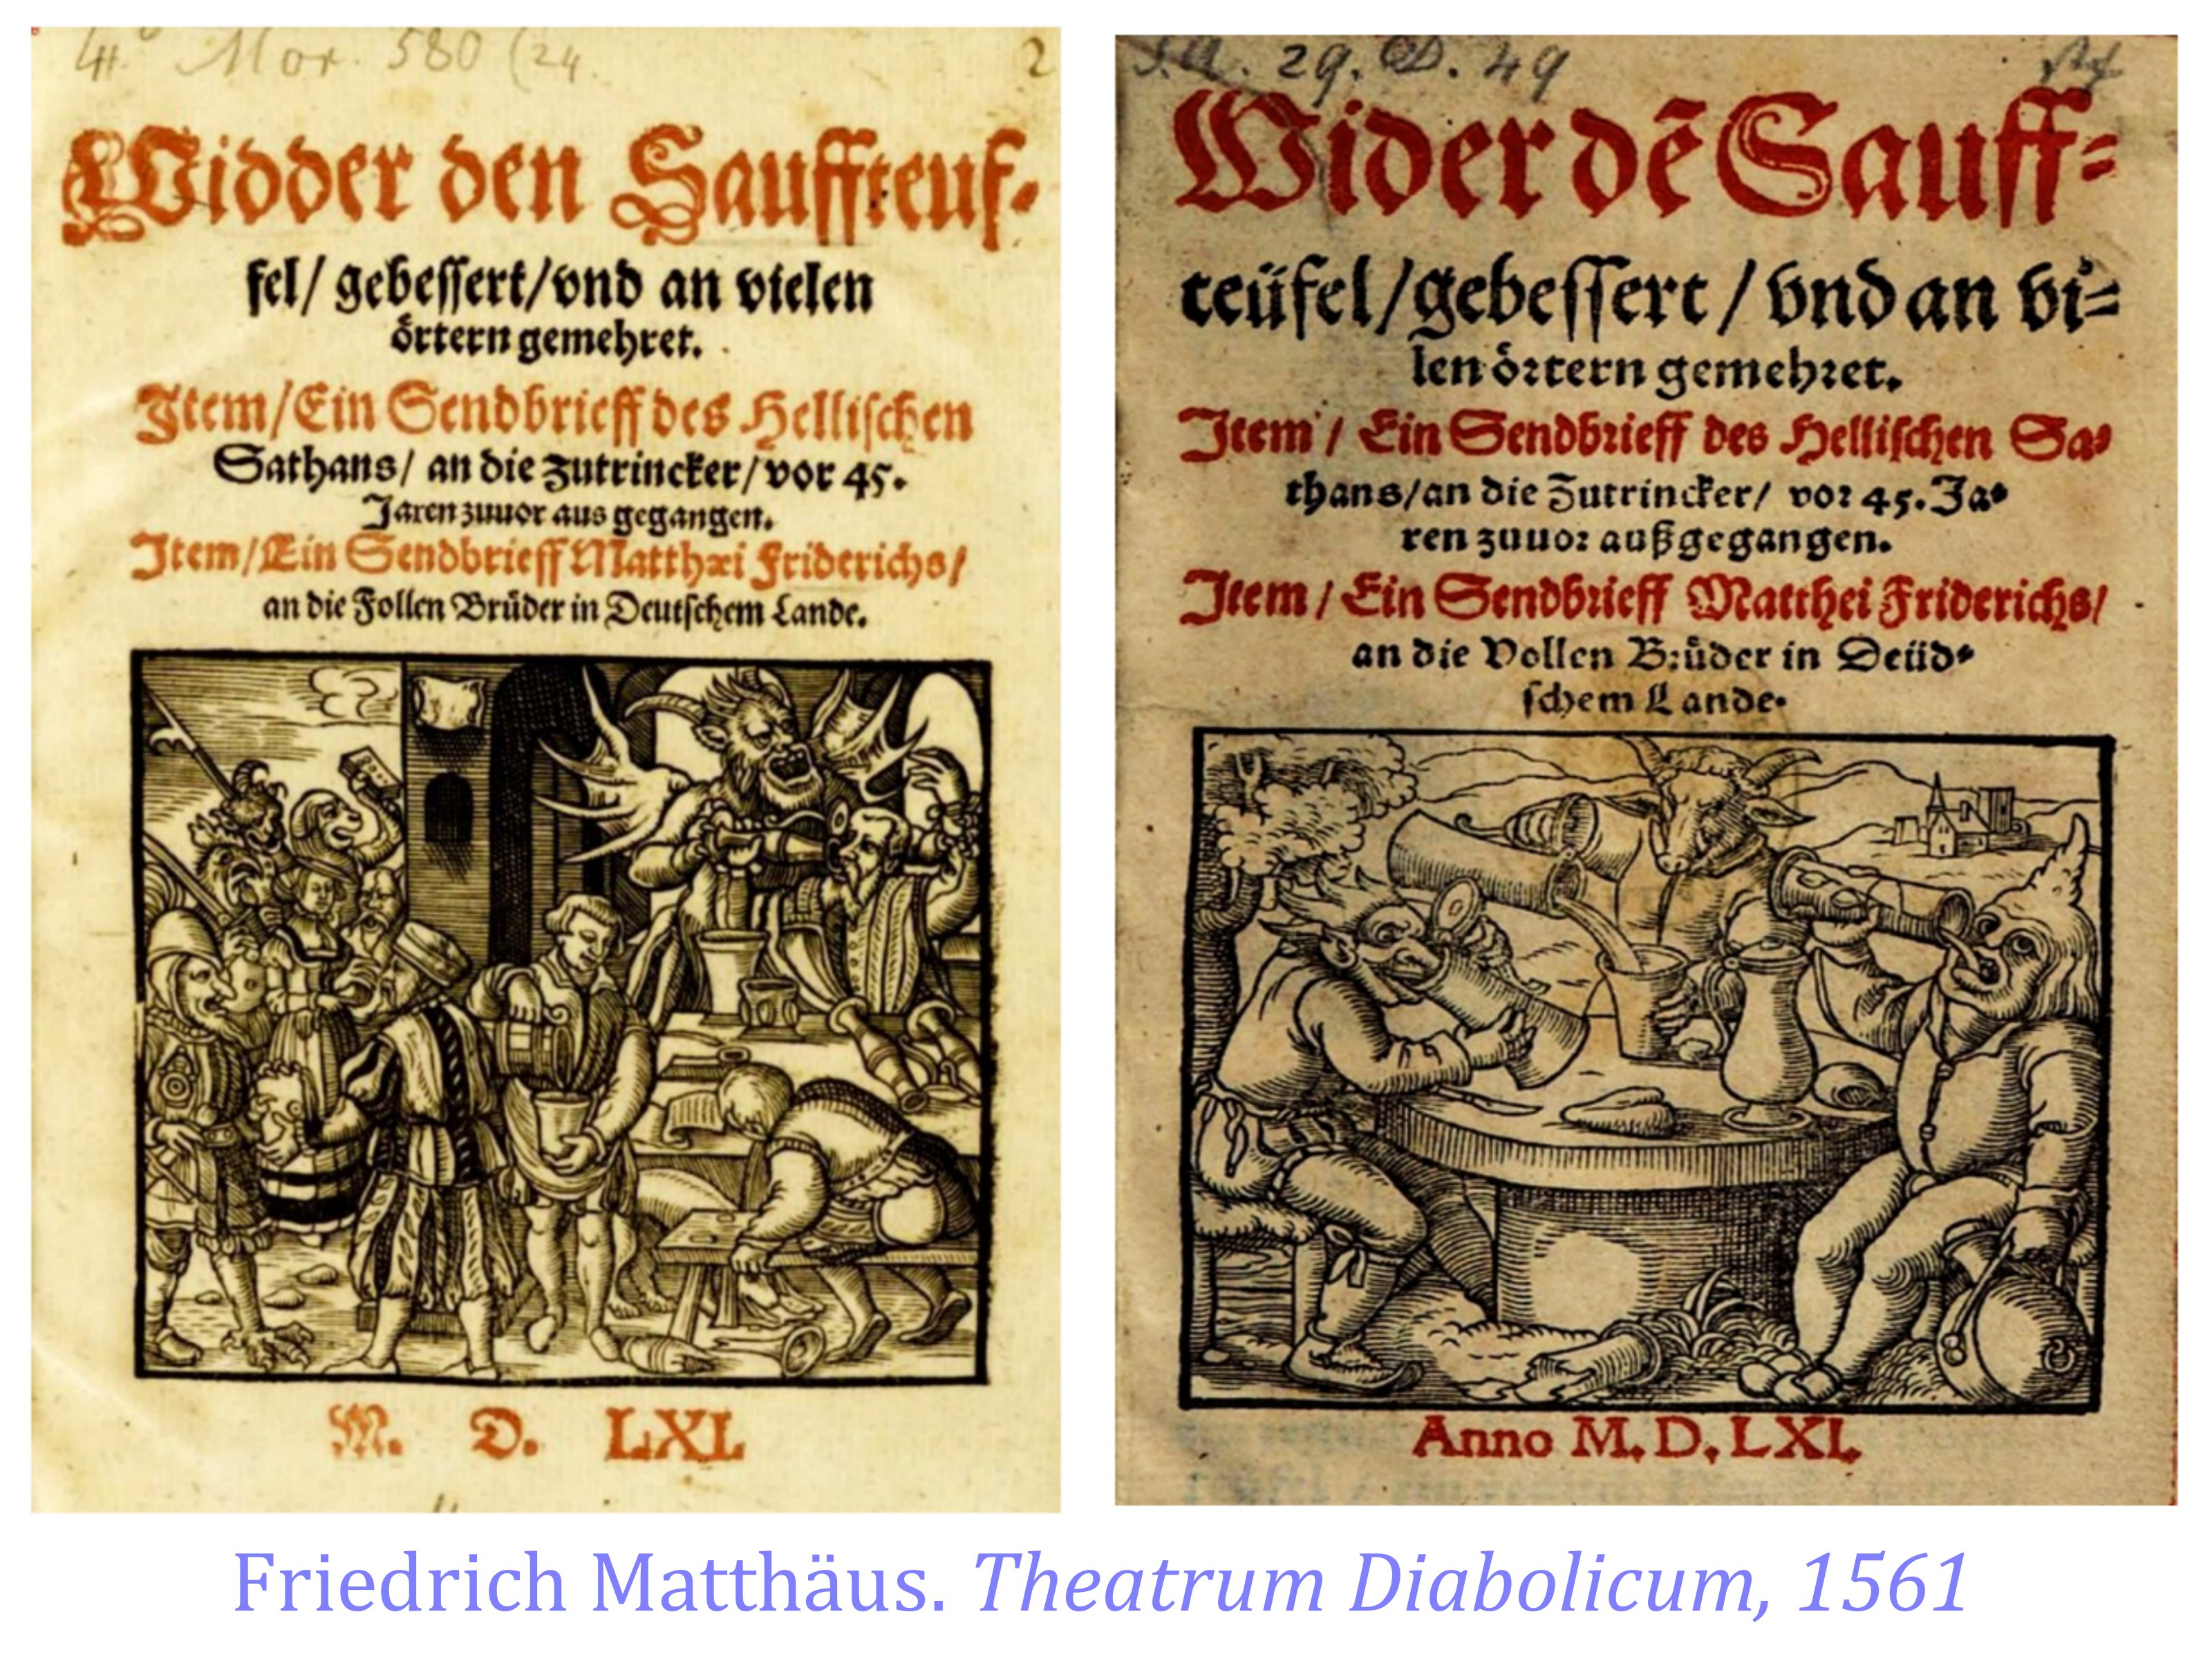 4° Mor. 580 (24.
2
Widder den Sauffteuf-
fel/ gebessert/vnd an vielen
örtern gemehret.
Item/Ein Sendbrieff des Hellischen
Sathans/ an die zutrincker/vor 45.
Jaren zuuor aus gegangen.
Item/Ein Sendbrieff Matthæi Friderichs/
an die Follen Brüder in Deutschem Lande.
M. D. LXI.
29. D. 49
Wider dē Sauff-
teüfel/gebessert/vnd an vi-
len örtern gemehret.
Item/ Ein Sendbrieff des Hellischen Sa-
thans/an die Zutrincker/ vor 45. Ja-
ren zuuor außgegangen.
Item/ Ein Sendbrieff Matthei Friderichs/
an die Vollen Brüder in Deüd-
schem Lande.
Anno M. D. LXI.
Friedrich Matthäus. Theatrum Diabolicum, 1561